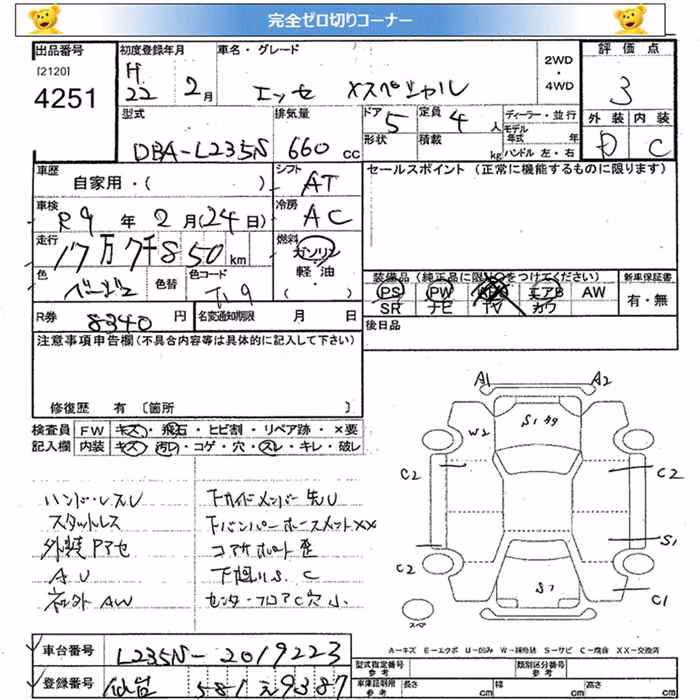 完全ゼロ切りコーナー
出品番号 初度登録年月 車名・グレード 2WD・4WD 評価点
[2120] 4251 H22 2月 エッセ Xスペシャル 3
型式 排気量 ドア 5 定員 4人 ディーラー・並行 外装 内装
DBA-L235N 660cc 形状 積載 kg モデル年式 年 ハンドル 左・右 D C
車歴 シフト セールスポイント (正常に機能するものに限ります)
自家用・( ) AT
車検 冷房
R9年2月(24日) AC
走行 燃料
17万7千850km ガソリン・軽油
色 色替 色コード ( )
ベージュ T19
装備品 (純正品に限り○をつけてください) 新車保証書
PS PW エアB AW 有・無
SR ナビ TV カワ
R券 8340円 名変通知期限 月 日 後日品
注意事項申告欄(不具合内容等は具体的に記入して下さい)
修復歴 有 〔箇所 〕
検査員 FW キズ・飛石・ヒビ割・リペア跡・×要
記入欄 内装 キズ・汚レ・コゲ・穴・スレ・キレ・破レ
ハンドルスレ
スタットレス
外装Pアセ
AU
社外AW
下カイドメンバー先U
下バンパーホースメントXX
コアサポート歪
下廻りS.C
センターフロアC穴小
A1 A2
W2 S1
C2 C2
S1
C2 S1 C1
スペ
A-キズ E-エクボ U-凹み W-補修跡 S-サビ C-腐食 XX-交換済
車台番号 L235N-2019223
型式指定番号 参考 類別区分番号 参考
登録番号 仙台 581 え 9387
車体制限 参考 長さ cm 幅 cm 高さ cm